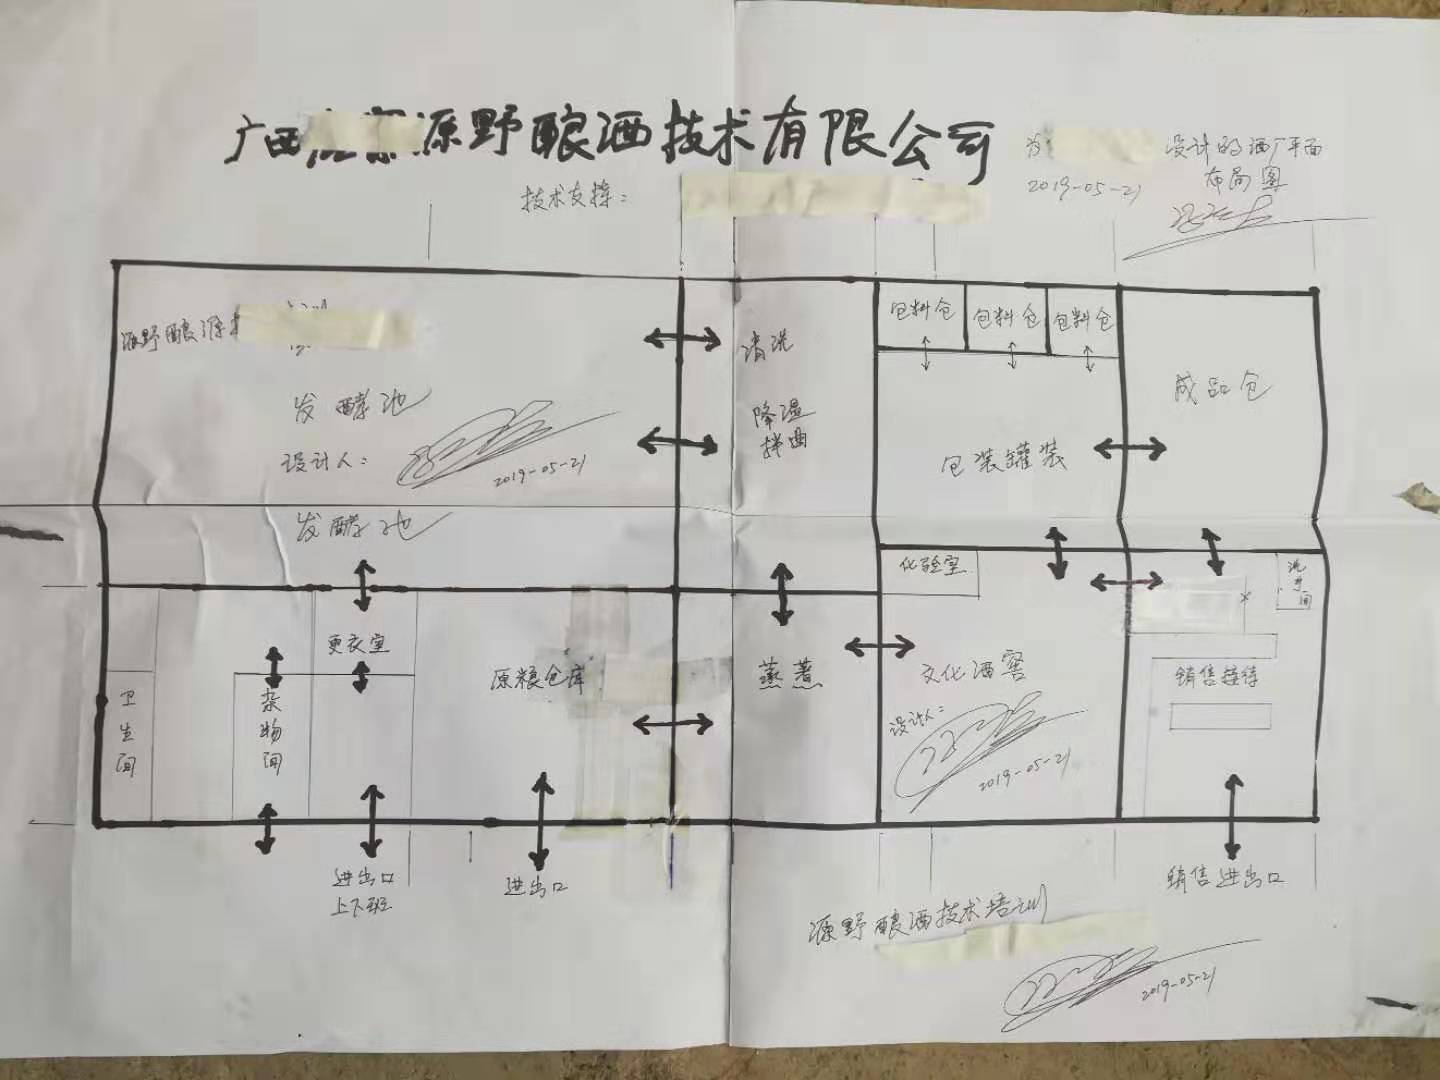 广西源野酿酒技术有限公司
为 设计的酒厂平面
布局图
2019-05-21
技术支持：
源野酿酒技
清洗
包料仓
包料仓
包料仓
成品仓
发酵池
降温
拌曲
设计人：
2019-05-21
包装罐装
发酵池
化验室
洗手间
更衣室
原粮仓库
蒸煮
文化酒窖
销售接待
卫生间
杂物间
设计人：
2019-05-21
进出口
上下班
进出口
销售进出口
源野酿酒技术培训
2019-05-21